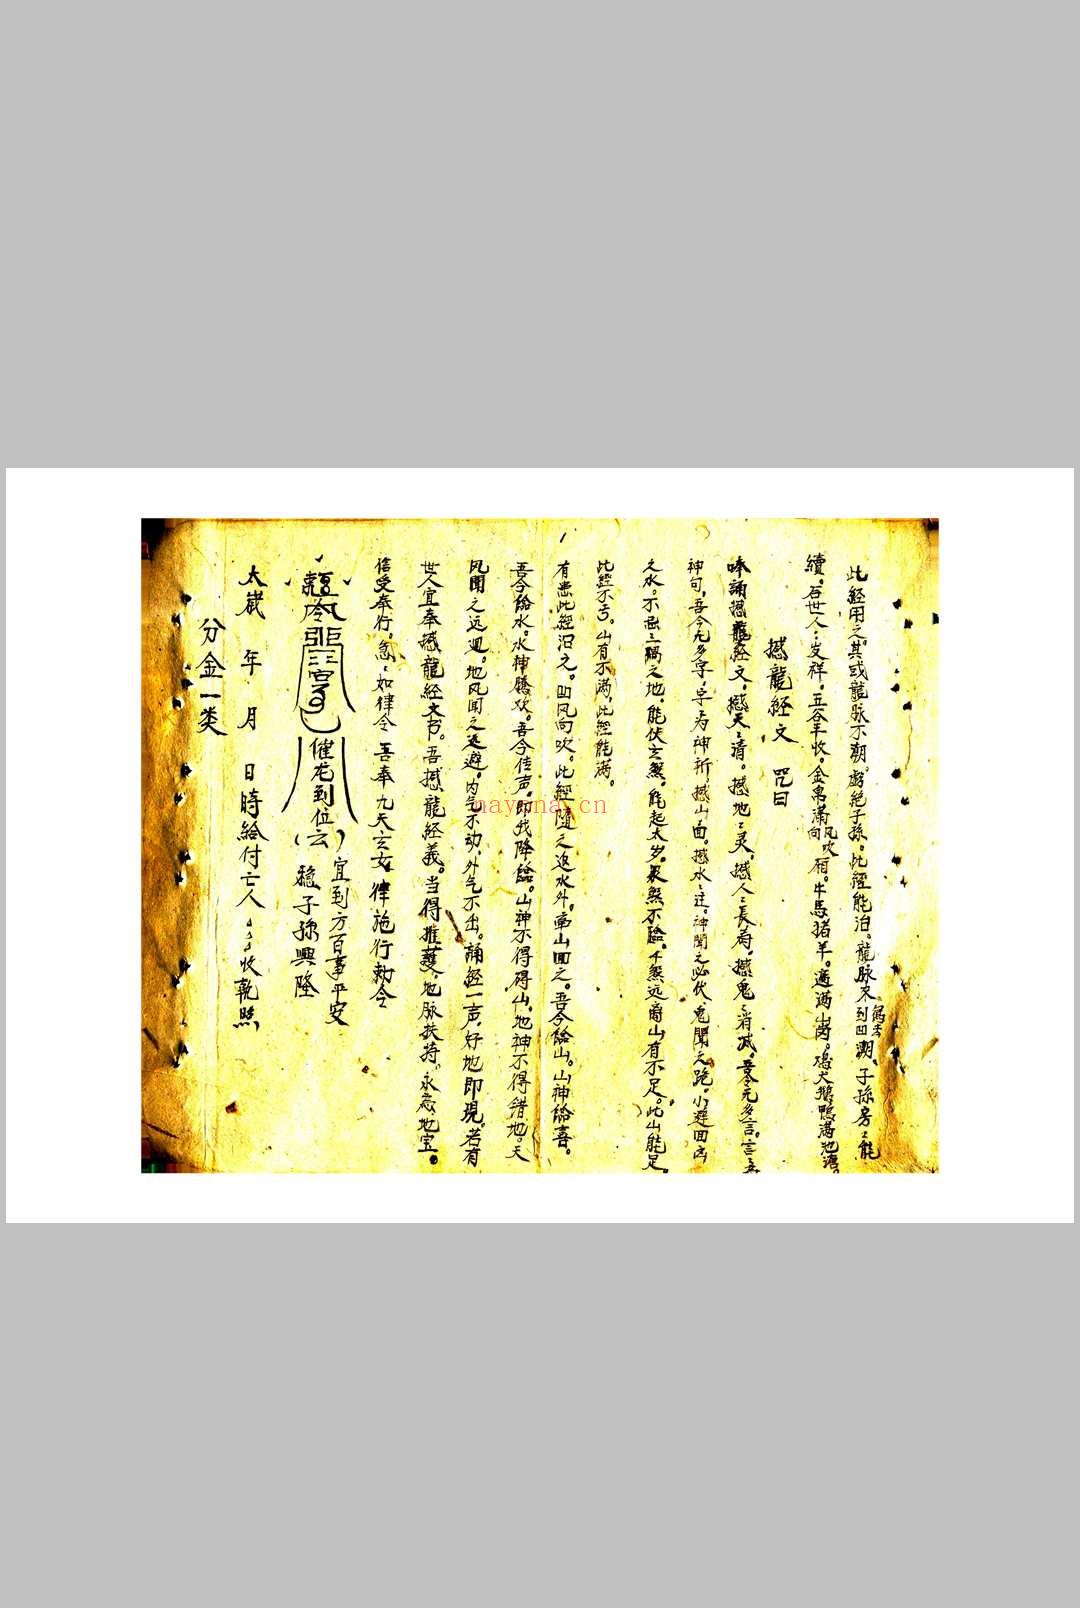 此經用之。其或龍脉不朝。虧絶子孫。此經能泊。龍脉來到凹潮。子孫房房能
續。召世人〻发祥。五谷丰收。金帛滿 风吹向 厢。牛馬猪羊。適满山崗。鸡犬鵝鸭滿池塘。
撼龍經文 咒曰
奉誦撼龍經文。撼天〻清。撼地〻灵。撼人〻長寿。撼鬼〻消滅。吾今无多言。言言
神句。吾今无多字。字字为神祈。撼山〻面。撼水〻注。神聞之必伏。鬼聞之跪。小避回凶
之水。不畏三禍之地。能伏玄煞。能起太岁。衆煞不臨。千煞远离山有不足。此山能足。
此經不亏。山有不满。此經能满。
有患此經泊之。凹风向吹。此經隨之返水外。牽山回之。吾今給山。山神給喜。
吾今給水。水神騰欢。吾今佳声。即我降給。山神不得碍山。地神不得錯地。天
凤聞之远迴。地风聞之返避。内气不动。外气不出。誦經一声。好地即現。若有
世人宜奉撼龍經文书。吾撼龍經義。当得推護。地脉扶持。永為地宝。
信受奉行。急〻如律令 吾奉九天玄女律施行勅令
催龙到位(云)
宜到方百事平安
穩子孫興隆
太歲 年 月 日時給付亡人〻〻〻收執照
分金一类
nayona.cn